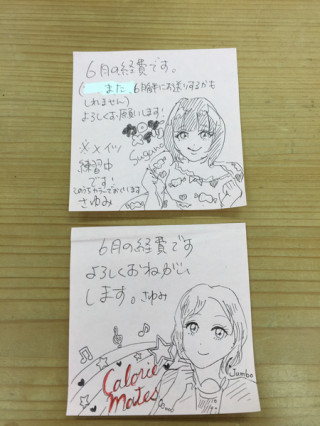 6月の経費です。
また、6月中にお送りするかも
しれません)
よろしくお願いします!
Sugano
※メイツ
練習中
です!
さゆみ
6月の経費です
よろしくおねがい
します。さゆみ
Calorie
Mates
Jumbo